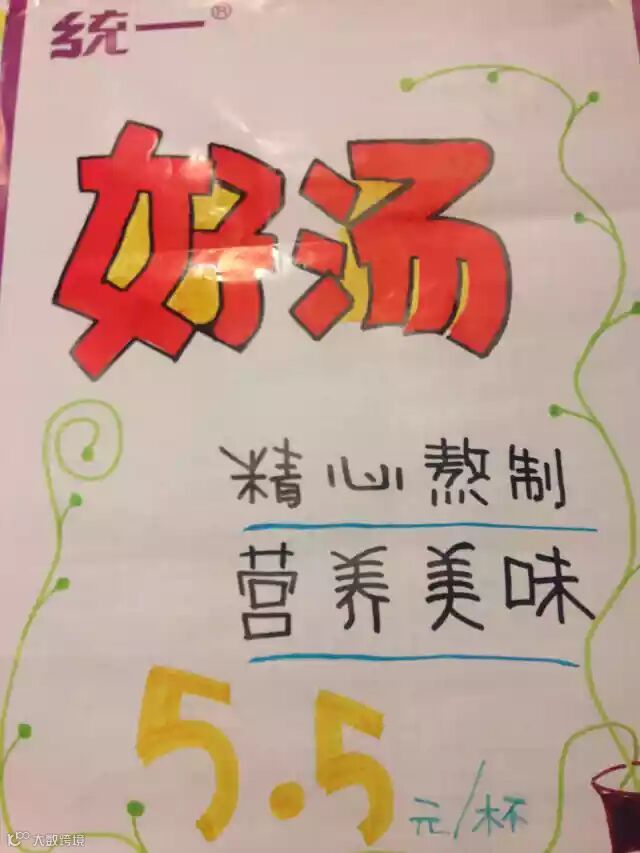 统一®
好汤
精心熬制
营养美味
5.5元/杯
大数跨境